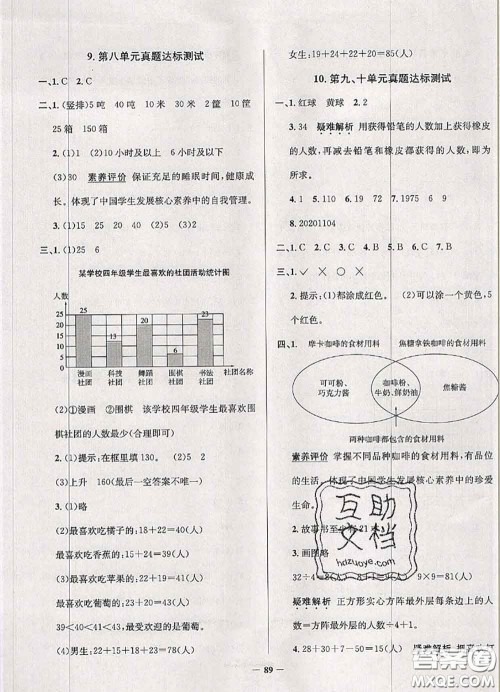 9. 第八单元真题达标测试
一、1. C 2. C
二、1. (竖排)5 吨 40 吨 10 米 30 米 2 筐 10 筐
25 箱 150 箱
2. (1)2 (2)10 小时及以上 6 小时及以下
(3)30 素养评价 保证充足的睡眠时间,健康成
长。体现了中国学生发展核心素养中的自我管理。
3. (1)15 25 20 40 (2)155
三、1. (1)25 6
某学校四年级学生最喜欢的社团活动统计图
人数
30
25
20
15
10
5
0
25
13
20
6
23
漫画社团
科技社团
舞蹈社团
围棋社团
书法社团
社团名称
(2)①漫画 ②围棋 该学校四年级学生最喜欢围
棋社团的人数最少(合理即可)
2. (1)提示:在框里填 130。 (2)15 5
(3)上升 160(最后一空答案不唯一)
3. (1)略
(2)最喜欢吃橘子的:18+22=40(人)
最喜欢吃香蕉的:15+24=39(人)
(3)最喜欢吃苹果的:22+21=43(人)
最喜欢吃葡萄的:23+20=43(人)
39<40<43,最受欢迎的是葡萄。
(4)男生:22+15+18+23=78(人)
女生:19+24+22+20=85(人)
10. 第九、十单元真题达标测试
一、1. 红球 黄球 2. 21
3. 34 疑难解析 用获得铅笔的人数加上获得橡皮
的人数,再减去铅笔和橡皮都获得的人数,即为所
求。
4. 1 5. 110 6. 19 27 7. 1975 6 9
8. 20201104
二、1. C 2. C 3. B 4. C 5. C
三、1.
2. 提示:(1)都涂成红色。 (2)可以涂一个黄色,5
个红色。
四、1. 摩卡咖啡的食材用料 焦糖拿铁咖啡的食材用料
可可粉、巧克力酱
咖啡粉、牛奶、鲜奶油
焦糖酱
两种咖啡都包含的食材用料
素养评价 掌握不同品种咖啡的食材用料,有品位
的生活,体现了中国学生发展核心素养中的珍爱
生命。
2. 故事书至少
3. 画图略
32÷4=8(人)
9×9=81(人)
疑难解析 正方形实心方阵最外层每条边上的人
数=最外层的人数÷4+1。
4. 28+30+15=73(人)
互助
文档
hdzuoye.com
89